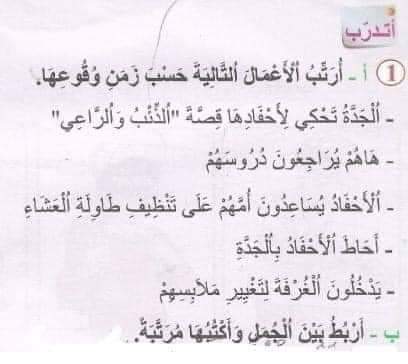 أتدرّب
1 أ - أُرَتِّبُ الْأَعْمَالَ التَّالِيَةَ حَسْبَ زَمَنِ وُقُوعِهَا.
- الْجَدَّةُ تَحْكِي لِأَحْفَادِهَا قِصَّةَ "الذِّئْبُ وَالرَّاعِي"
- هَاهُمْ يُرَاجِعُونَ دُرُوسَهُمْ
- الْأَحْفَادُ يُسَاعِدُونَ أُمَّهُمْ عَلَى تَنْظِيفِ طَاوِلَةِ الْعَشَاءِ
- أَحَاطَ الْأَحْفَادُ بِالْجَدَّةِ
- يَدْخُلُونَ الْغُرْفَةَ لِتَغْيِيرِ مَلَابِسِهِمْ
ب - أَرْبُطُ بَيْنَ الْجُمَلِ وَأَكْتُبُهَا مُرَتَّبَةً.